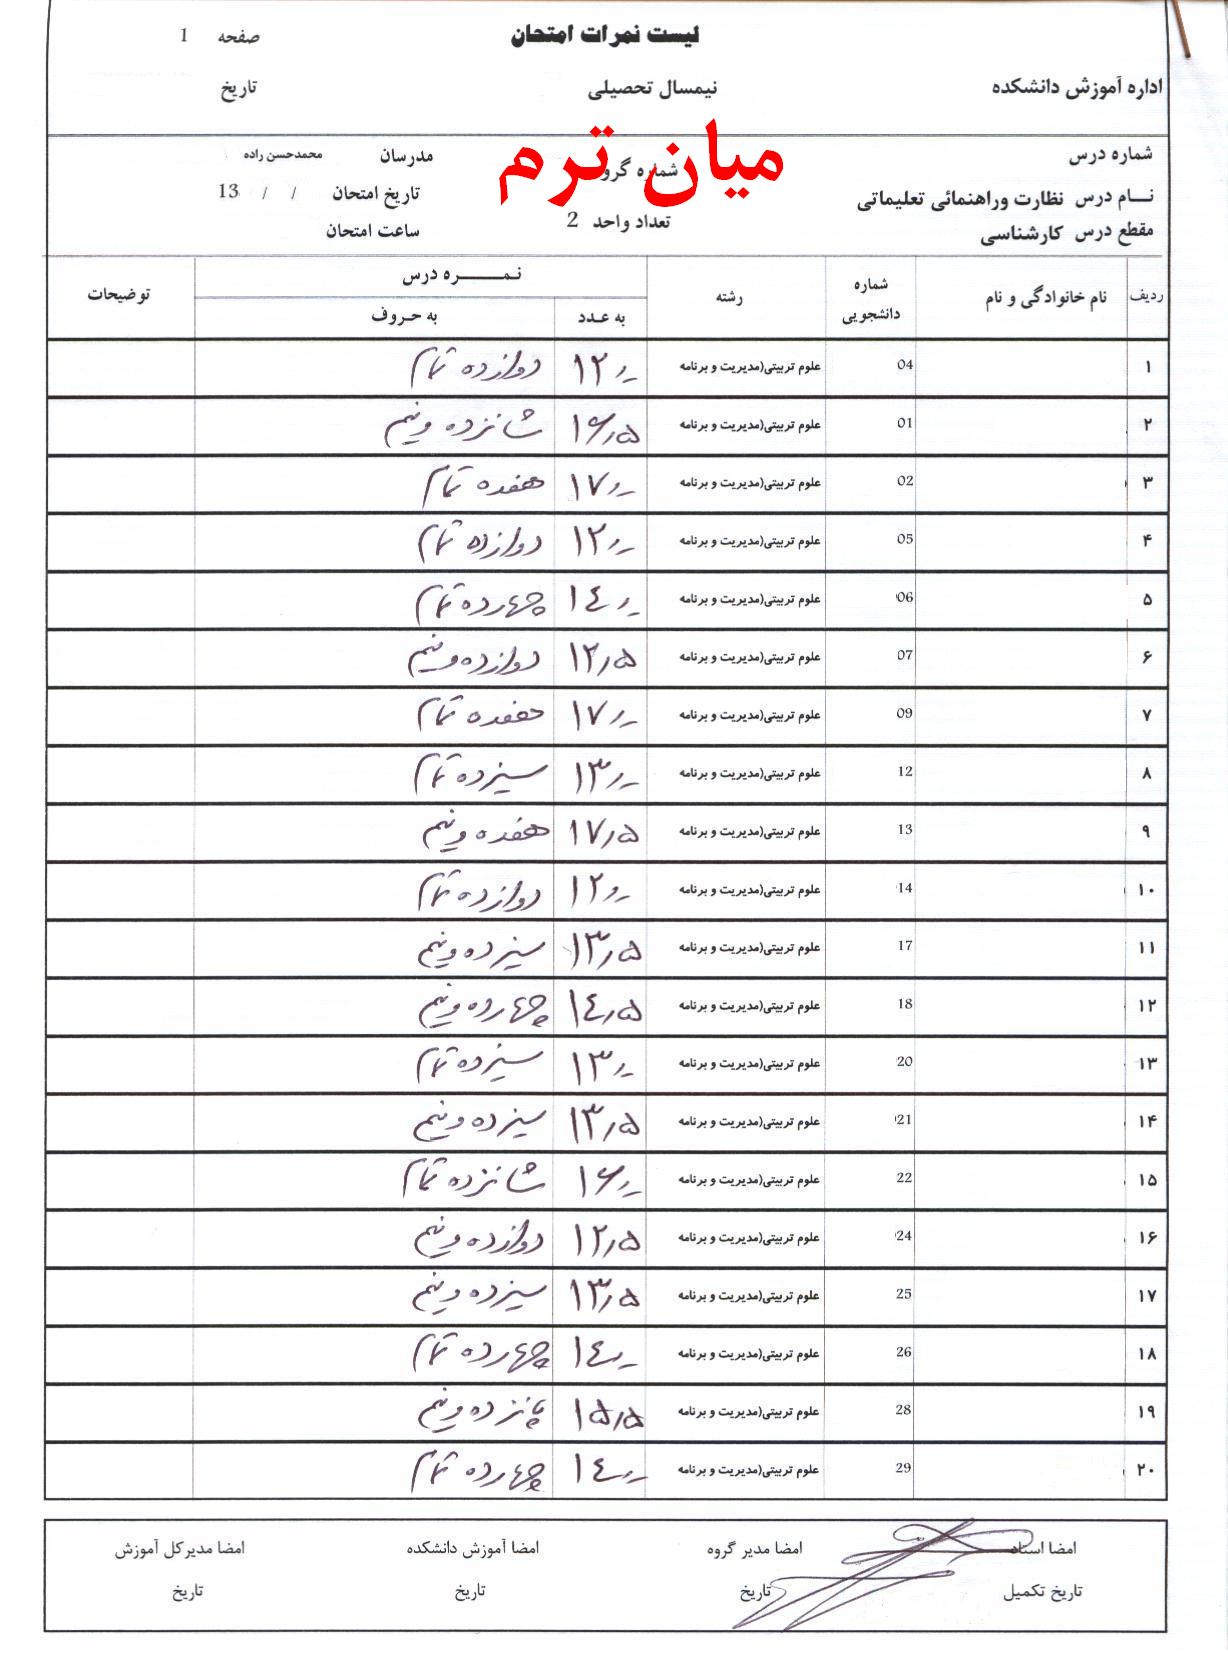 لیست نمرات امتحان
صفحه 1
اداره آموزش دانشکده نیمسال تحصیلی تاریخ
میان ترم
شماره درس شماره گرو مدرسان محمدحسن زاده
نـــام درس نظارت وراهنمائی تعلیماتی تاریخ امتحان / / 13
مقطع درس کارشناسی تعداد واحد 2 ساعت امتحان
ردیف نام خانوادگی و نام شماره دانشجویی رشته نـمــــــره درس توضیحات
به عـدد به حـروف
۱ 04 علوم تربیتی(مدیریت و برنامه ۱۲٫- دوازده تمام
۲ 01 علوم تربیتی(مدیریت و برنامه ۱۶٫۵ شانزده ونیم
۳ 02 علوم تربیتی(مدیریت و برنامه ۱۷٫- هفده تمام
۴ 05 علوم تربیتی(مدیریت و برنامه ۱۲٫- دوازده تمام
۵ 06 علوم تربیتی(مدیریت و برنامه ۱٤٫- چهارده تمام
۶ 07 علوم تربیتی(مدیریت و برنامه ۱۲٫۵ دوازده ونیم
۷ 09 علوم تربیتی(مدیریت و برنامه ۱۷٫- هفده تمام
۸ 12 علوم تربیتی(مدیریت و برنامه ۱۳٫- سیزده تمام
۹ 13 علوم تربیتی(مدیریت و برنامه ۱۷٫۵ هفده ونیم
۱۰ 14 علوم تربیتی(مدیریت و برنامه ۱۲٫- دوازده تمام
۱۱ 17 علوم تربیتی(مدیریت و برنامه ۱۳٫۵ سیزده ونیم
۱۲ 18 علوم تربیتی(مدیریت و برنامه ۱٤٫۵ چهارده ونیم
۱۳ 20 علوم تربیتی(مدیریت و برنامه ۱۳٫- سیزده تمام
۱۴ 21 علوم تربیتی(مدیریت و برنامه ۱۳٫۵ سیزده ونیم
۱۵ 22 علوم تربیتی(مدیریت و برنامه ۱۶٫- شانزده تمام
۱۶ 24 علوم تربیتی(مدیریت و برنامه ۱۲٫۵ دوازده ونیم
۱۷ 25 علوم تربیتی(مدیریت و برنامه ۱۳٫۵ سیزده ونیم
۱۸ 26 علوم تربیتی(مدیریت و برنامه ۱٤٫- چهارده تمام
۱۹ 28 علوم تربیتی(مدیریت و برنامه ۱۵٫۵ پانزده ونیم
۲۰ 29 علوم تربیتی(مدیریت و برنامه ۱٤٫- چهارده تمام
امضا استاد امضا مدیر گروه امضا آموزش دانشکده امضا مدیرکل آموزش
تاریخ تکمیل تاریخ تاریخ تاریخ